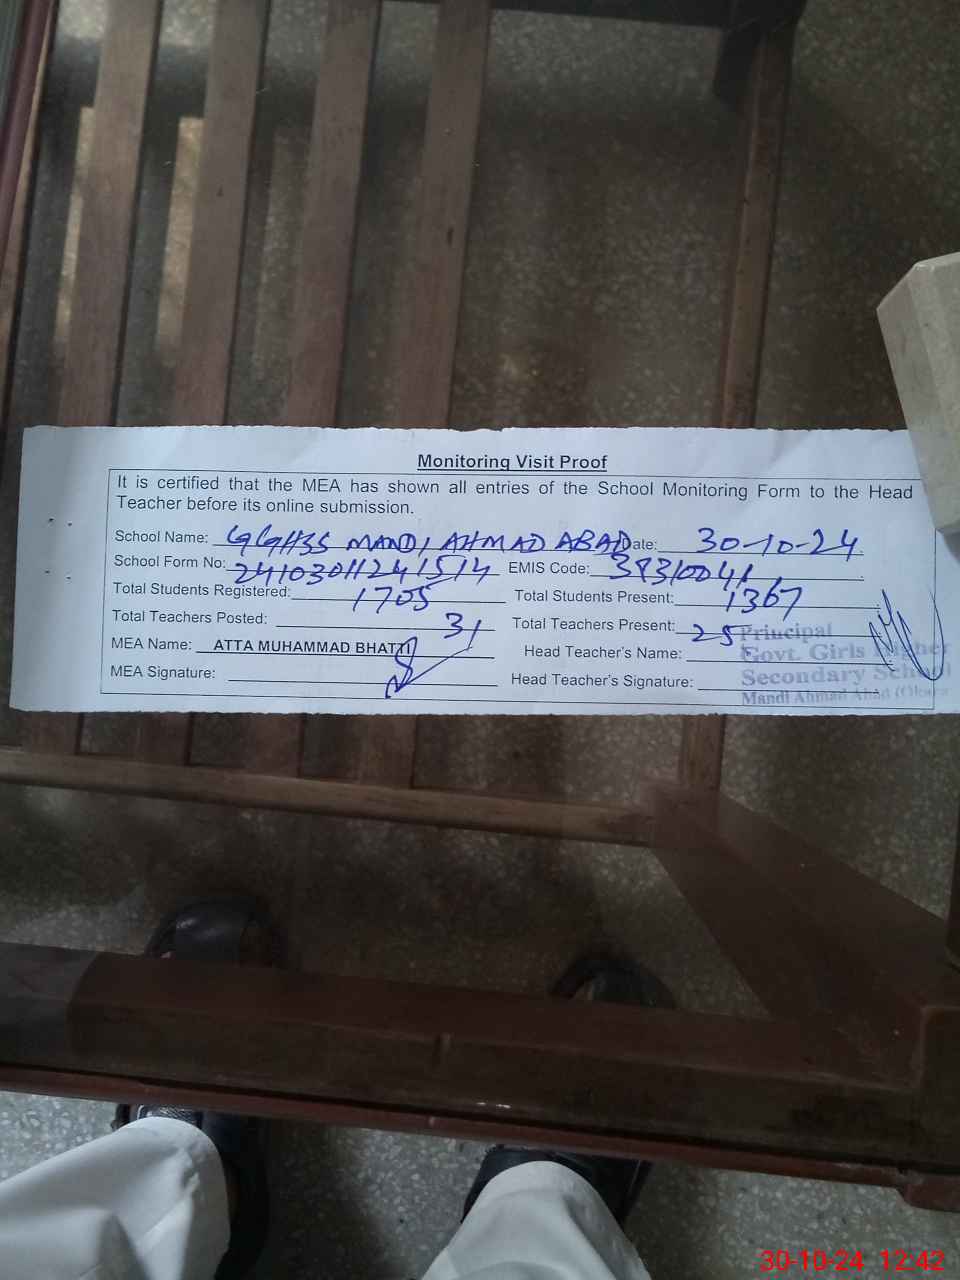 Monitoring Visit Proof
It is certified that the MEA has shown all entries of the School Monitoring Form to the Head
Teacher before its online submission.
School Name: GGHSS MANDI AHMAD ABAD Date: 30-10-24
School Form No: 24103011241514 EMIS Code: 39310041
Total Students Registered: 1705 Total Students Present: 1367
Total Teachers Posted: 31 Total Teachers Present: 25
MEA Name: ATTA MUHAMMAD BHATTI Head Teacher's Name:
MEA Signature: Head Teacher's Signature:
Principal
Govt. Girls Higher
Secondary School
Mandi Ahmad Abad (Okara
30-10-24 12:42